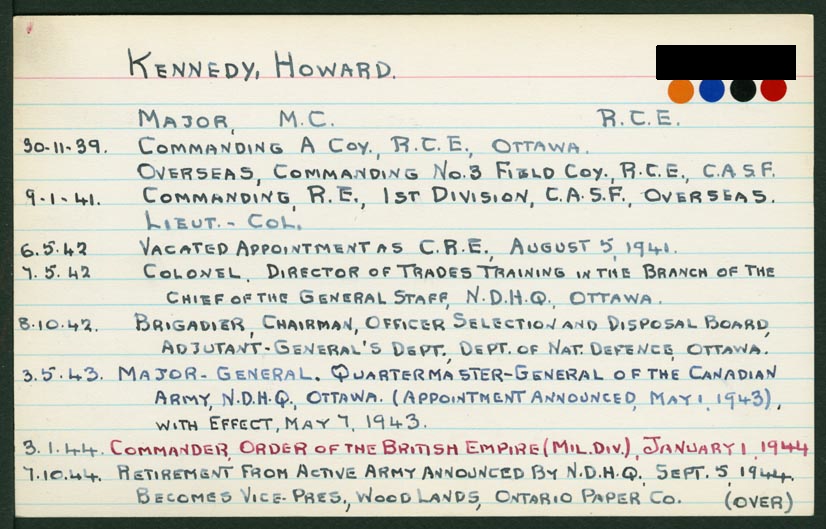 KENNEDY, HOWARD.
MAJOR, M.C. R.C.E.
30-11-39. COMMANDING A COY., R.C.E., OTTAWA.
OVERSEAS, COMMANDING No.3 FIELD COY., R.C.E., C.A.S.F.
9-1-41. COMMANDING, R.E., 1ST DIVISION, C.A.S.F., OVERSEAS.
LIEUT.-COL.
6.5.42 VACATED APPOINTMENT AS C.R.E., AUGUST 5, 1941.
7.5.42 COLONEL, DIRECTOR OF TRADES TRAINING IN THE BRANCH OF THE
CHIEF OF THE GENERAL STAFF, N.D.H.Q., OTTAWA.
8.10.42. BRIGADIER, CHAIRMAN, OFFICER SELECTION AND DISPOSAL BOARD,
ADJUTANT-GENERAL'S DEPT., DEPT. OF NAT. DEFENCE, OTTAWA.
3.5.43. MAJOR-GENERAL. QUARTERMASTER-GENERAL OF THE CANADIAN
ARMY, N.D.H.Q., OTTAWA. (APPOINTMENT ANNOUNCED, MAY 1, 1943),
WITH EFFECT, MAY 7, 1943.
3.1.44. COMMANDER, ORDER OF THE BRITISH EMPIRE (MIL. DIV.), JANUARY 1, 1944
7.10.44. RETIREMENT FROM ACTIVE ARMY ANNOUNCED BY N.D.H.Q., SEPT. 5, 1944.
BECOMES VICE-PRES., WOODLANDS, ONTARIO PAPER CO. (OVER)